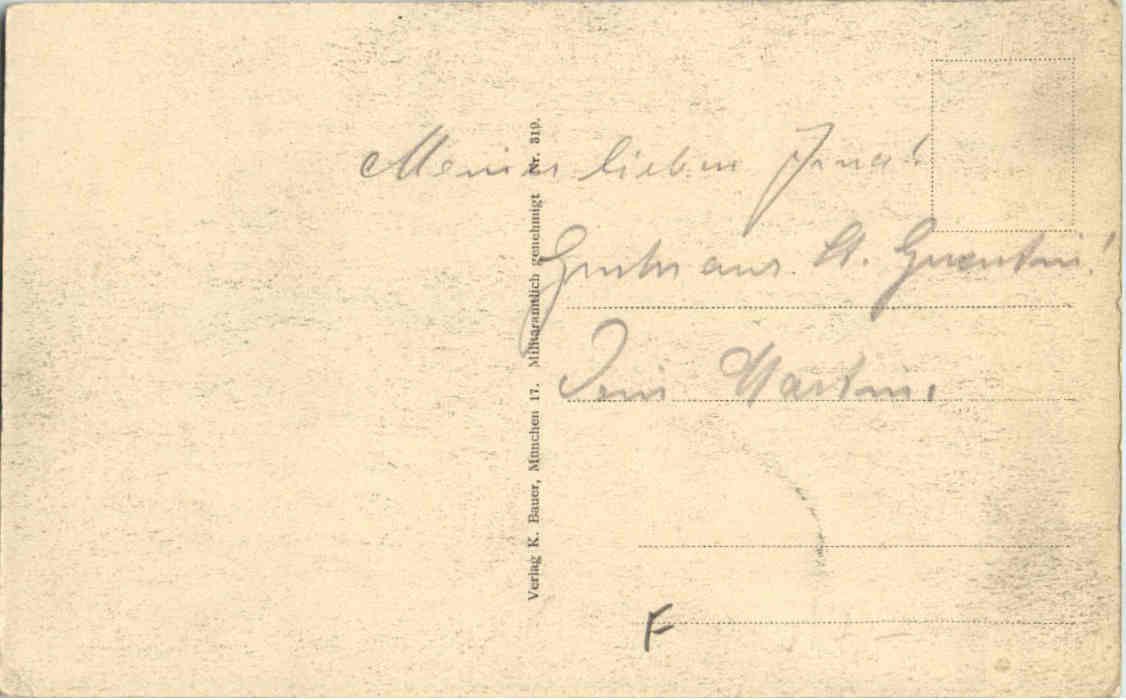 Meiner lieben Jena!
Grüße aus St. Quentin!
Dein Martin.
Verlag K. Bauer, München 17. Militäramtlich genehmigt Nr. 319.
F